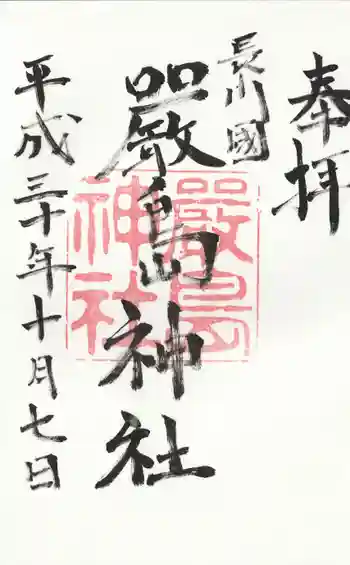 奉拝
長門國
嚴島神社
嚴島
神社
平成三十年十月七日